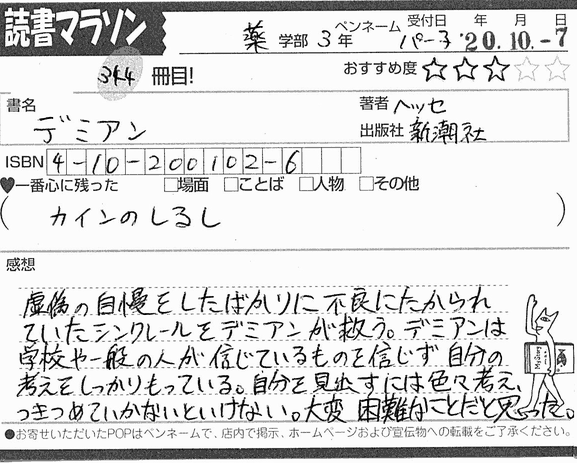 読書マラソン
薬 学部 3 年 ペンネーム パー子 受付日 年 月 日 '20.10.-7
344 冊目!
おすすめ度 ★★★☆☆
書名 デミアン
著者 ヘッセ
出版社 新潮社
ISBN 4-10-200102-6
♥一番心に残った □場面 □ことば □人物 □その他
( カインのしるし )
感想
虚偽の自慢をしたばかりに不良にたかられ
ていたシンクレールをデミアンが救う。デミアンは
学校や一般の人が信じているものを信じず自分の
考えをしっかりもっている。自分を見出すには色々考え、
つきつめていかないといけない。大変困難なことだと思った。
●お寄せいただいたPOPはペンネームで、店内で掲示、ホームページおよび宣伝物への転載をご了承ください。